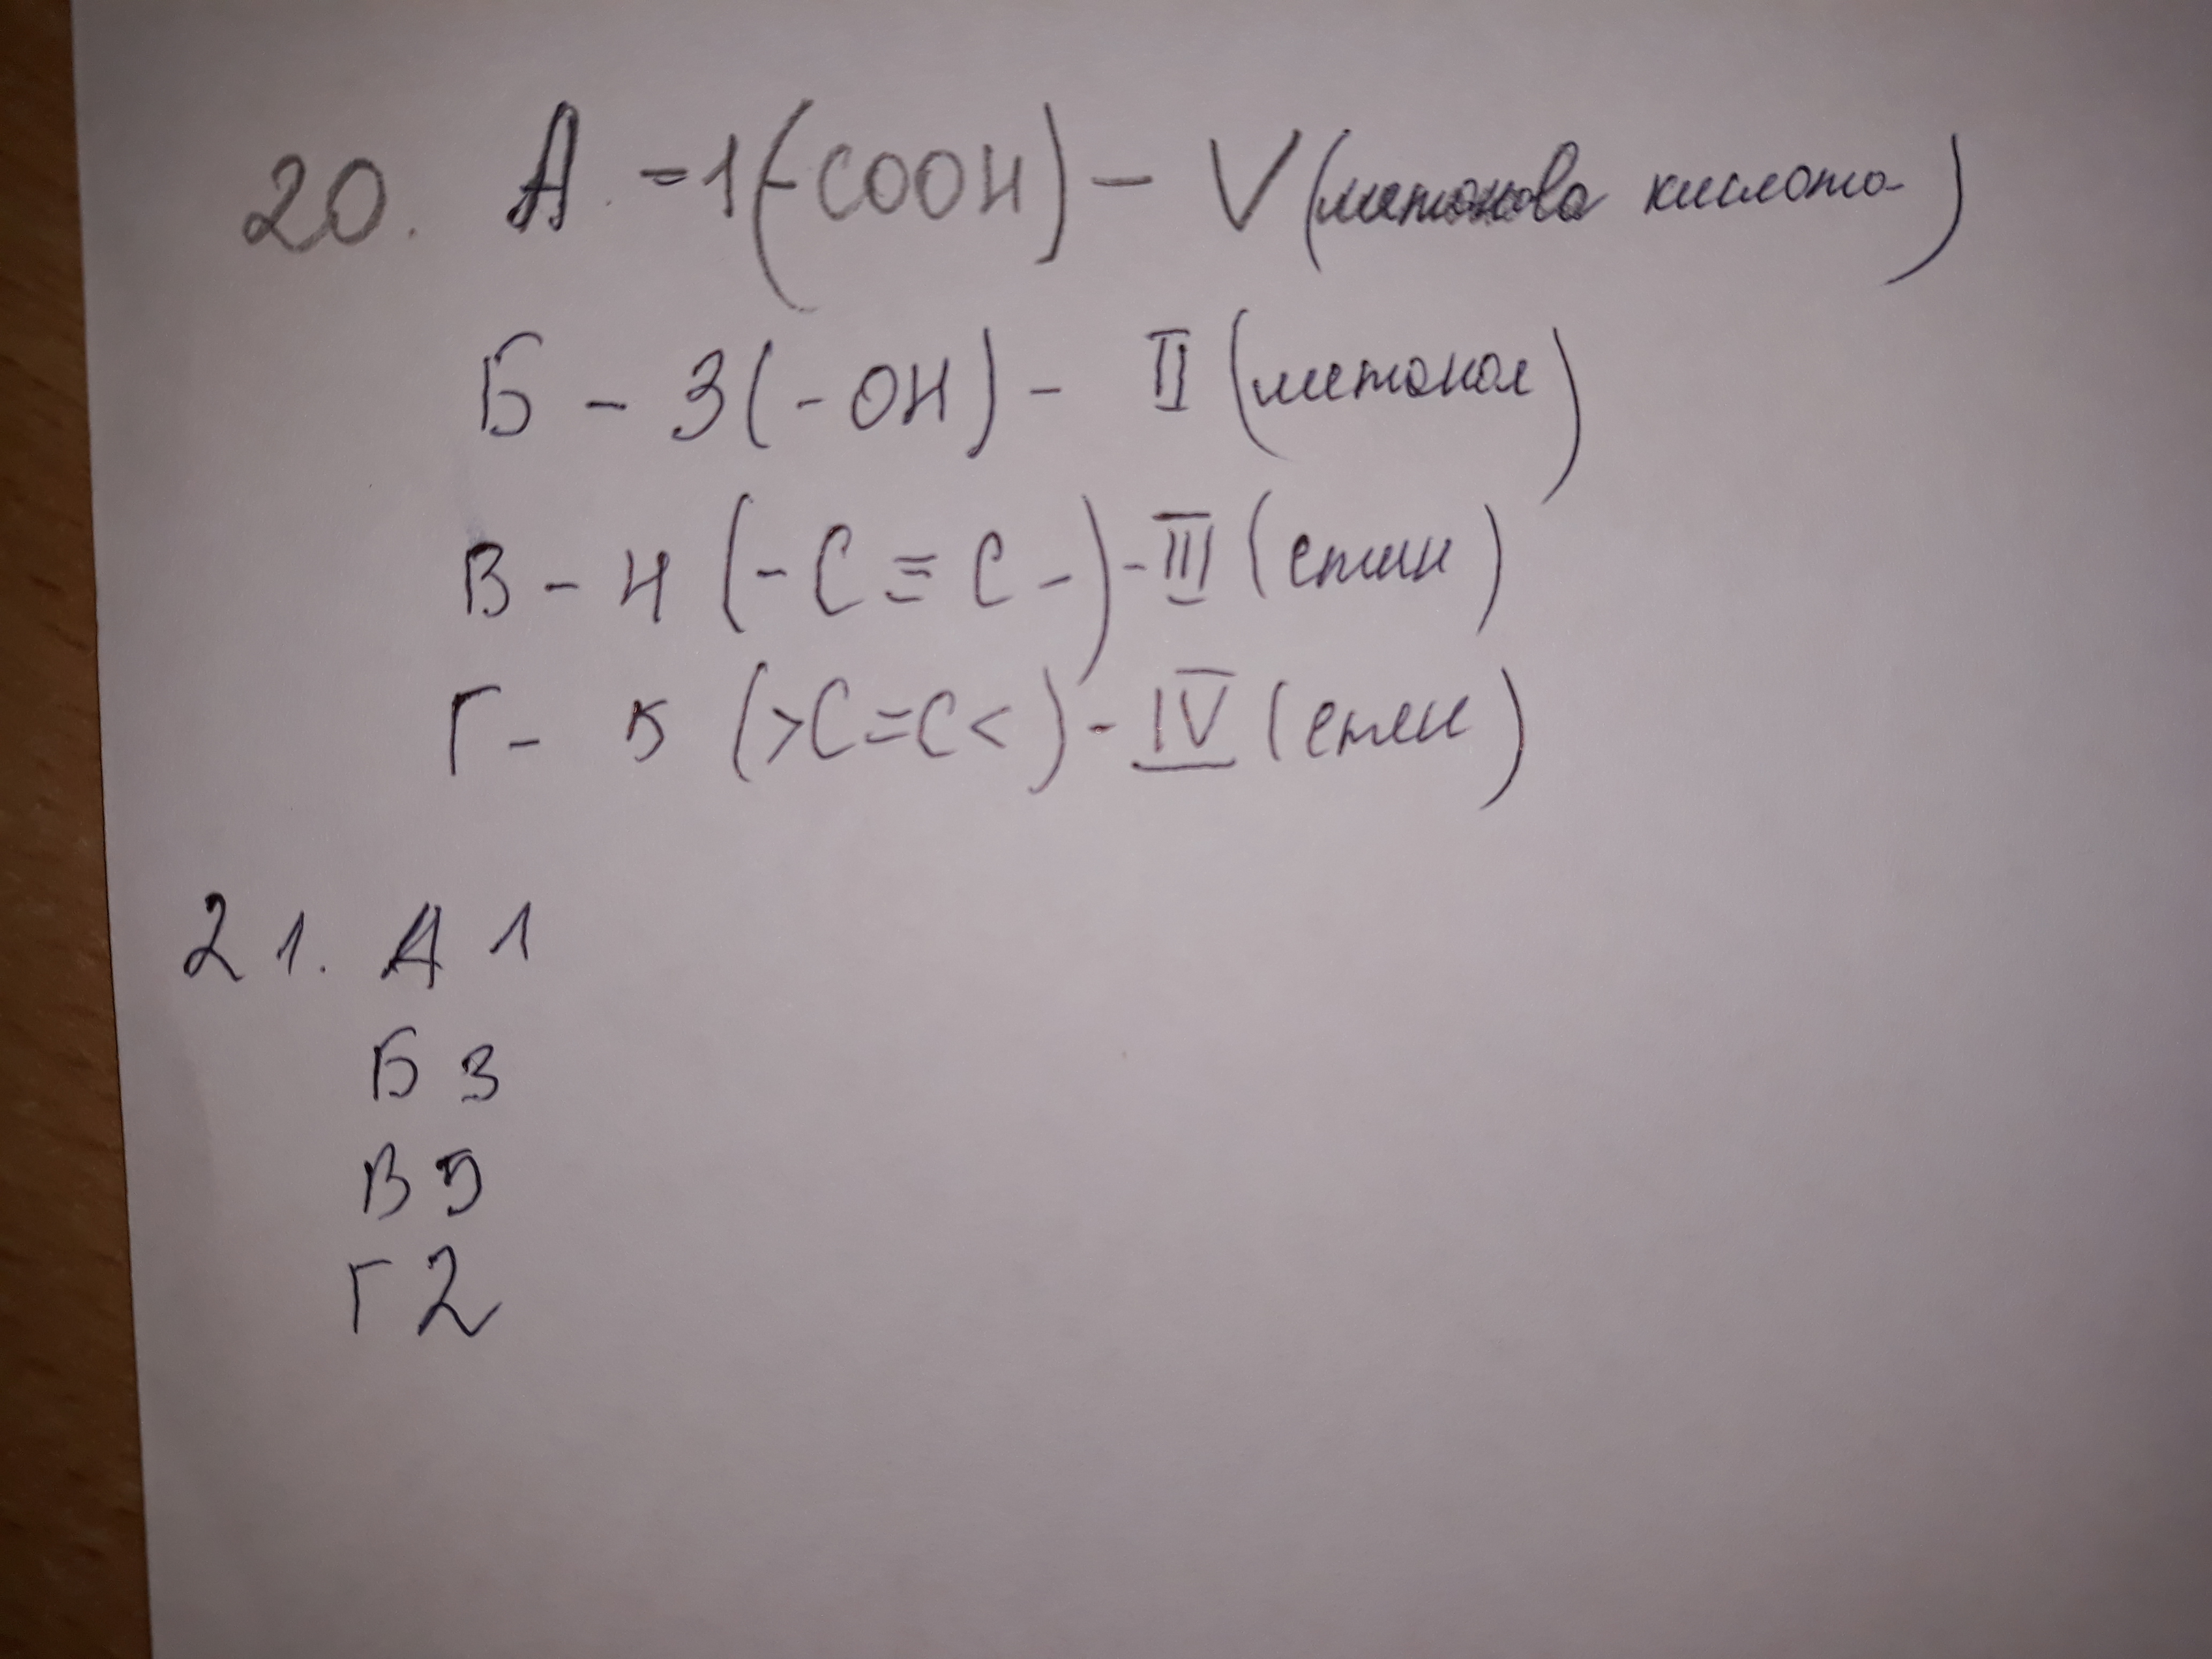 20. А - 1 (-COOH) - V (метанова кислота)
Б - 3 (-OH) - II (метанол)
В - 4 (-C≡C-) - III (етин)
Г - 5 (>C=C<) - IV (етен)
21. А 1
Б 3
В 5
Г 2